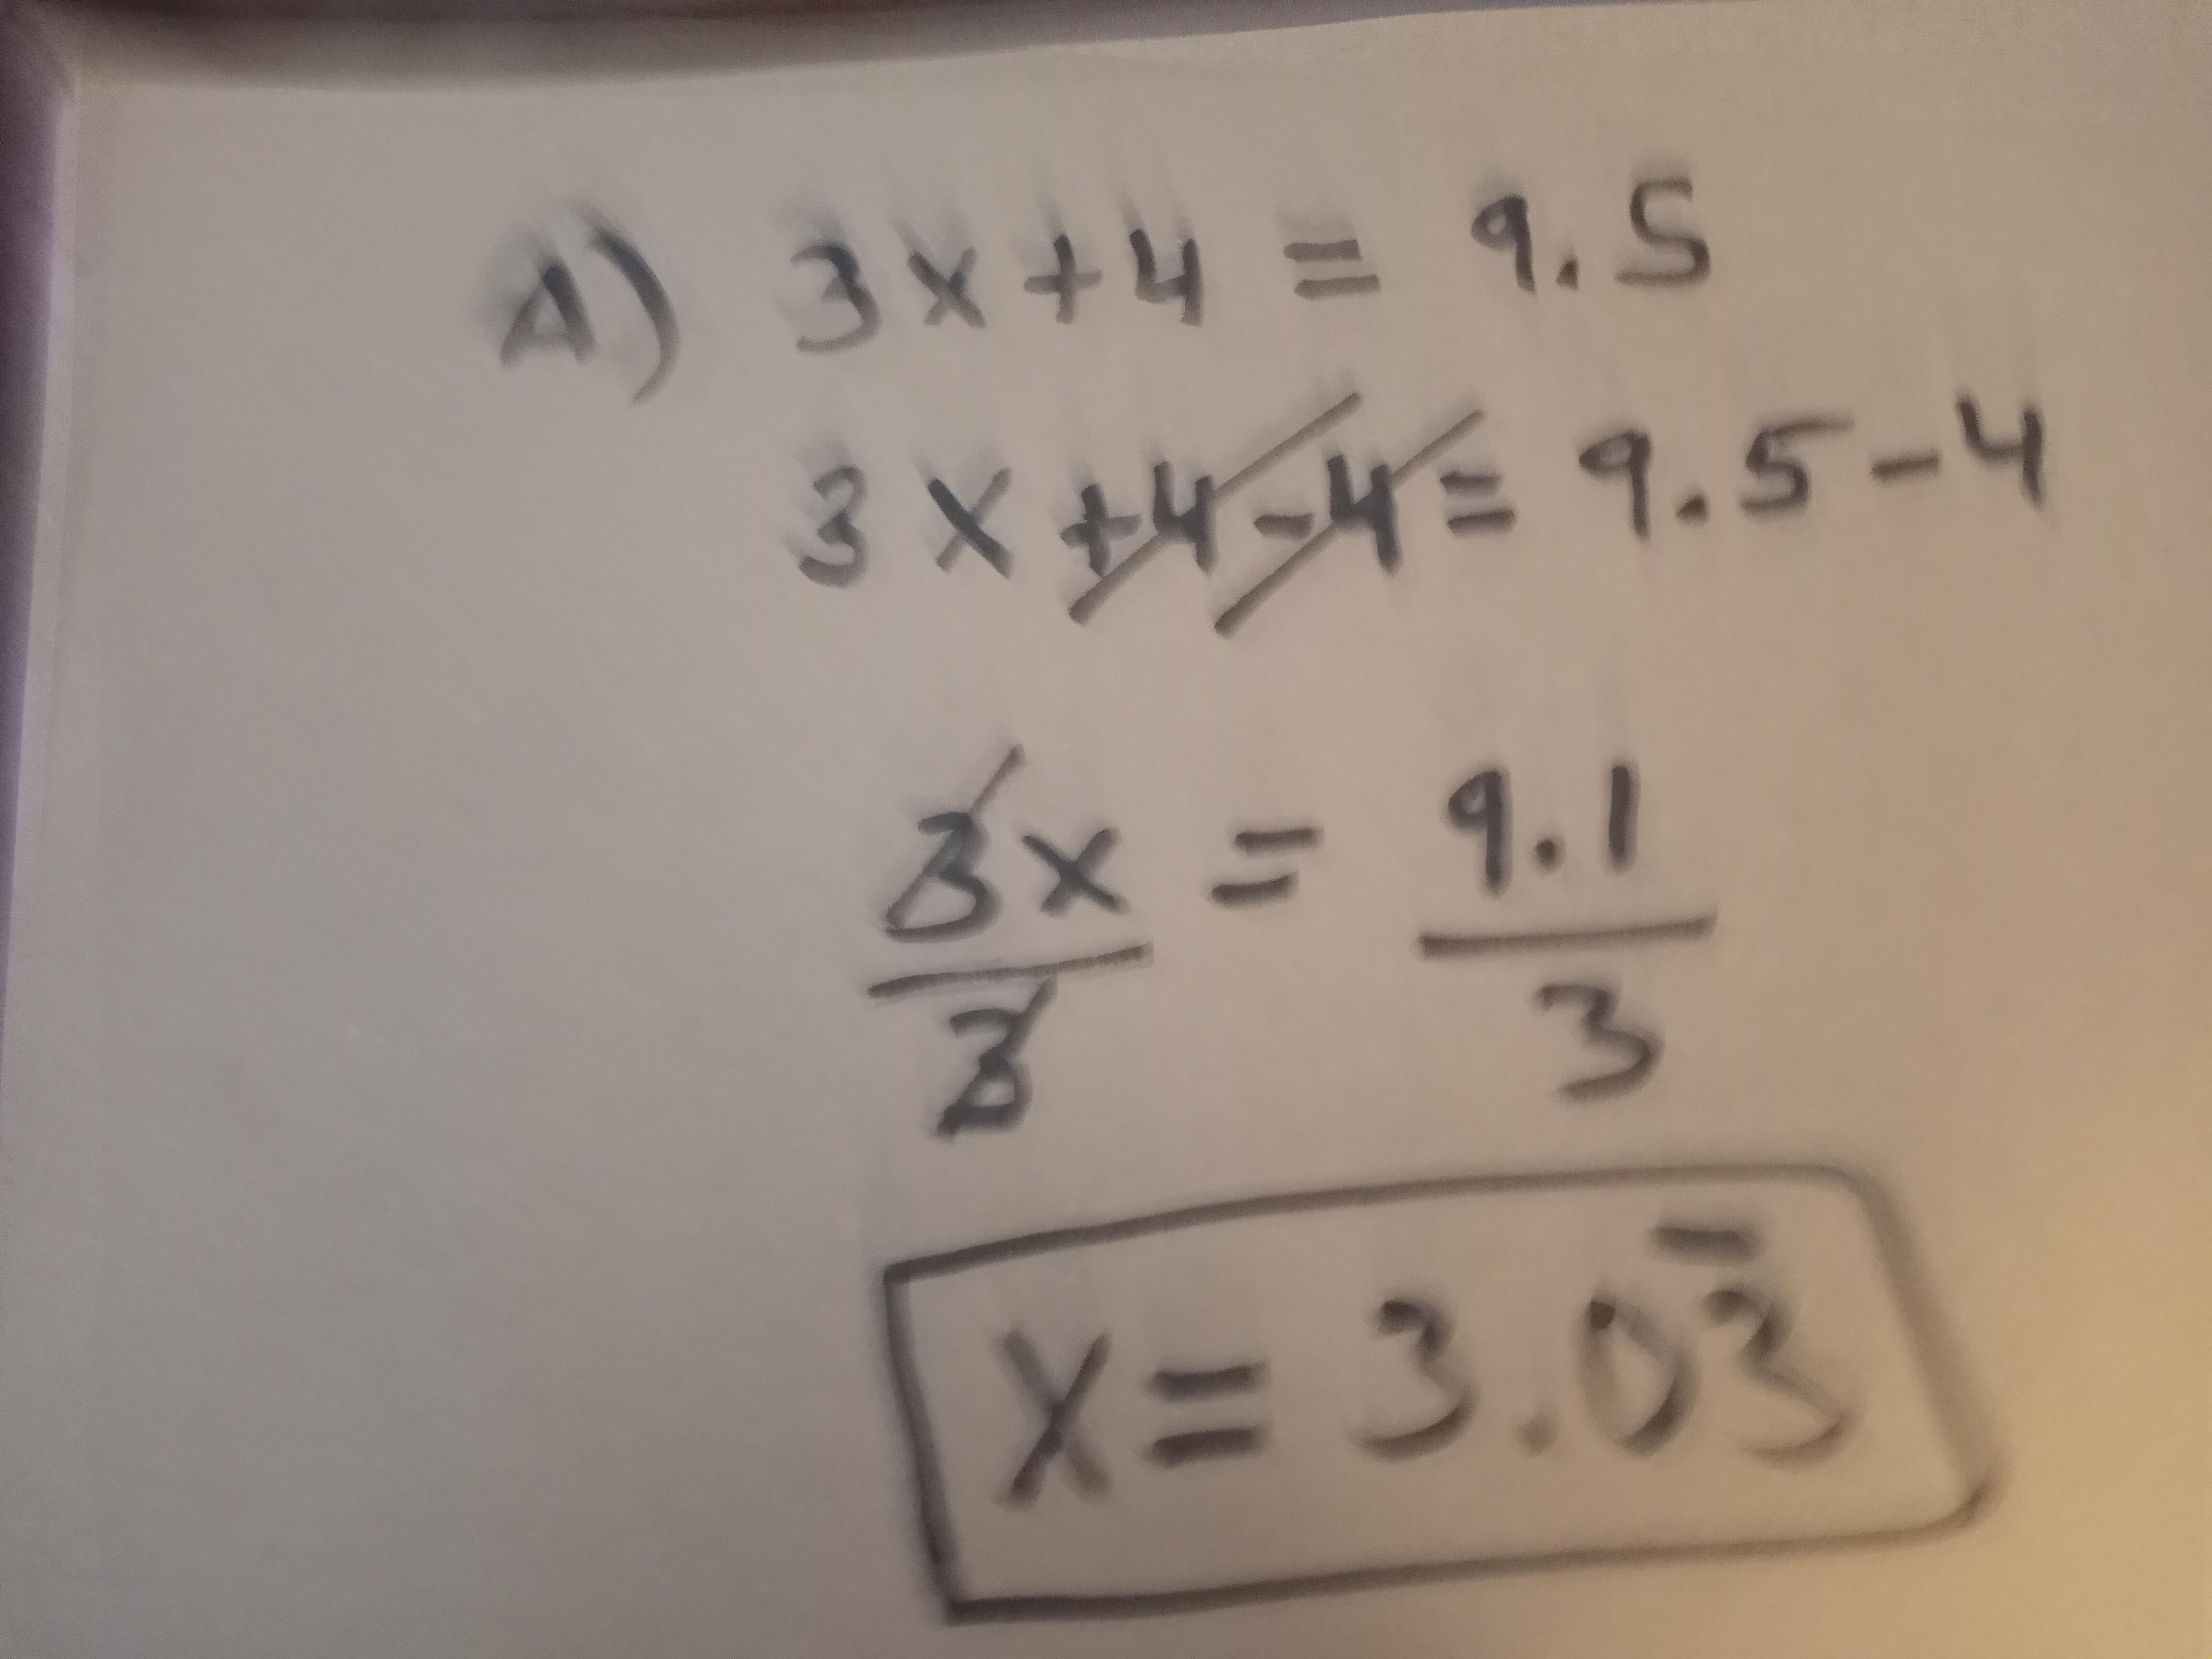 A) 3x+4 = 9.5
3x+4-4 = 9.5-4
3x/3 = 9.1/3
x = 3.03̄